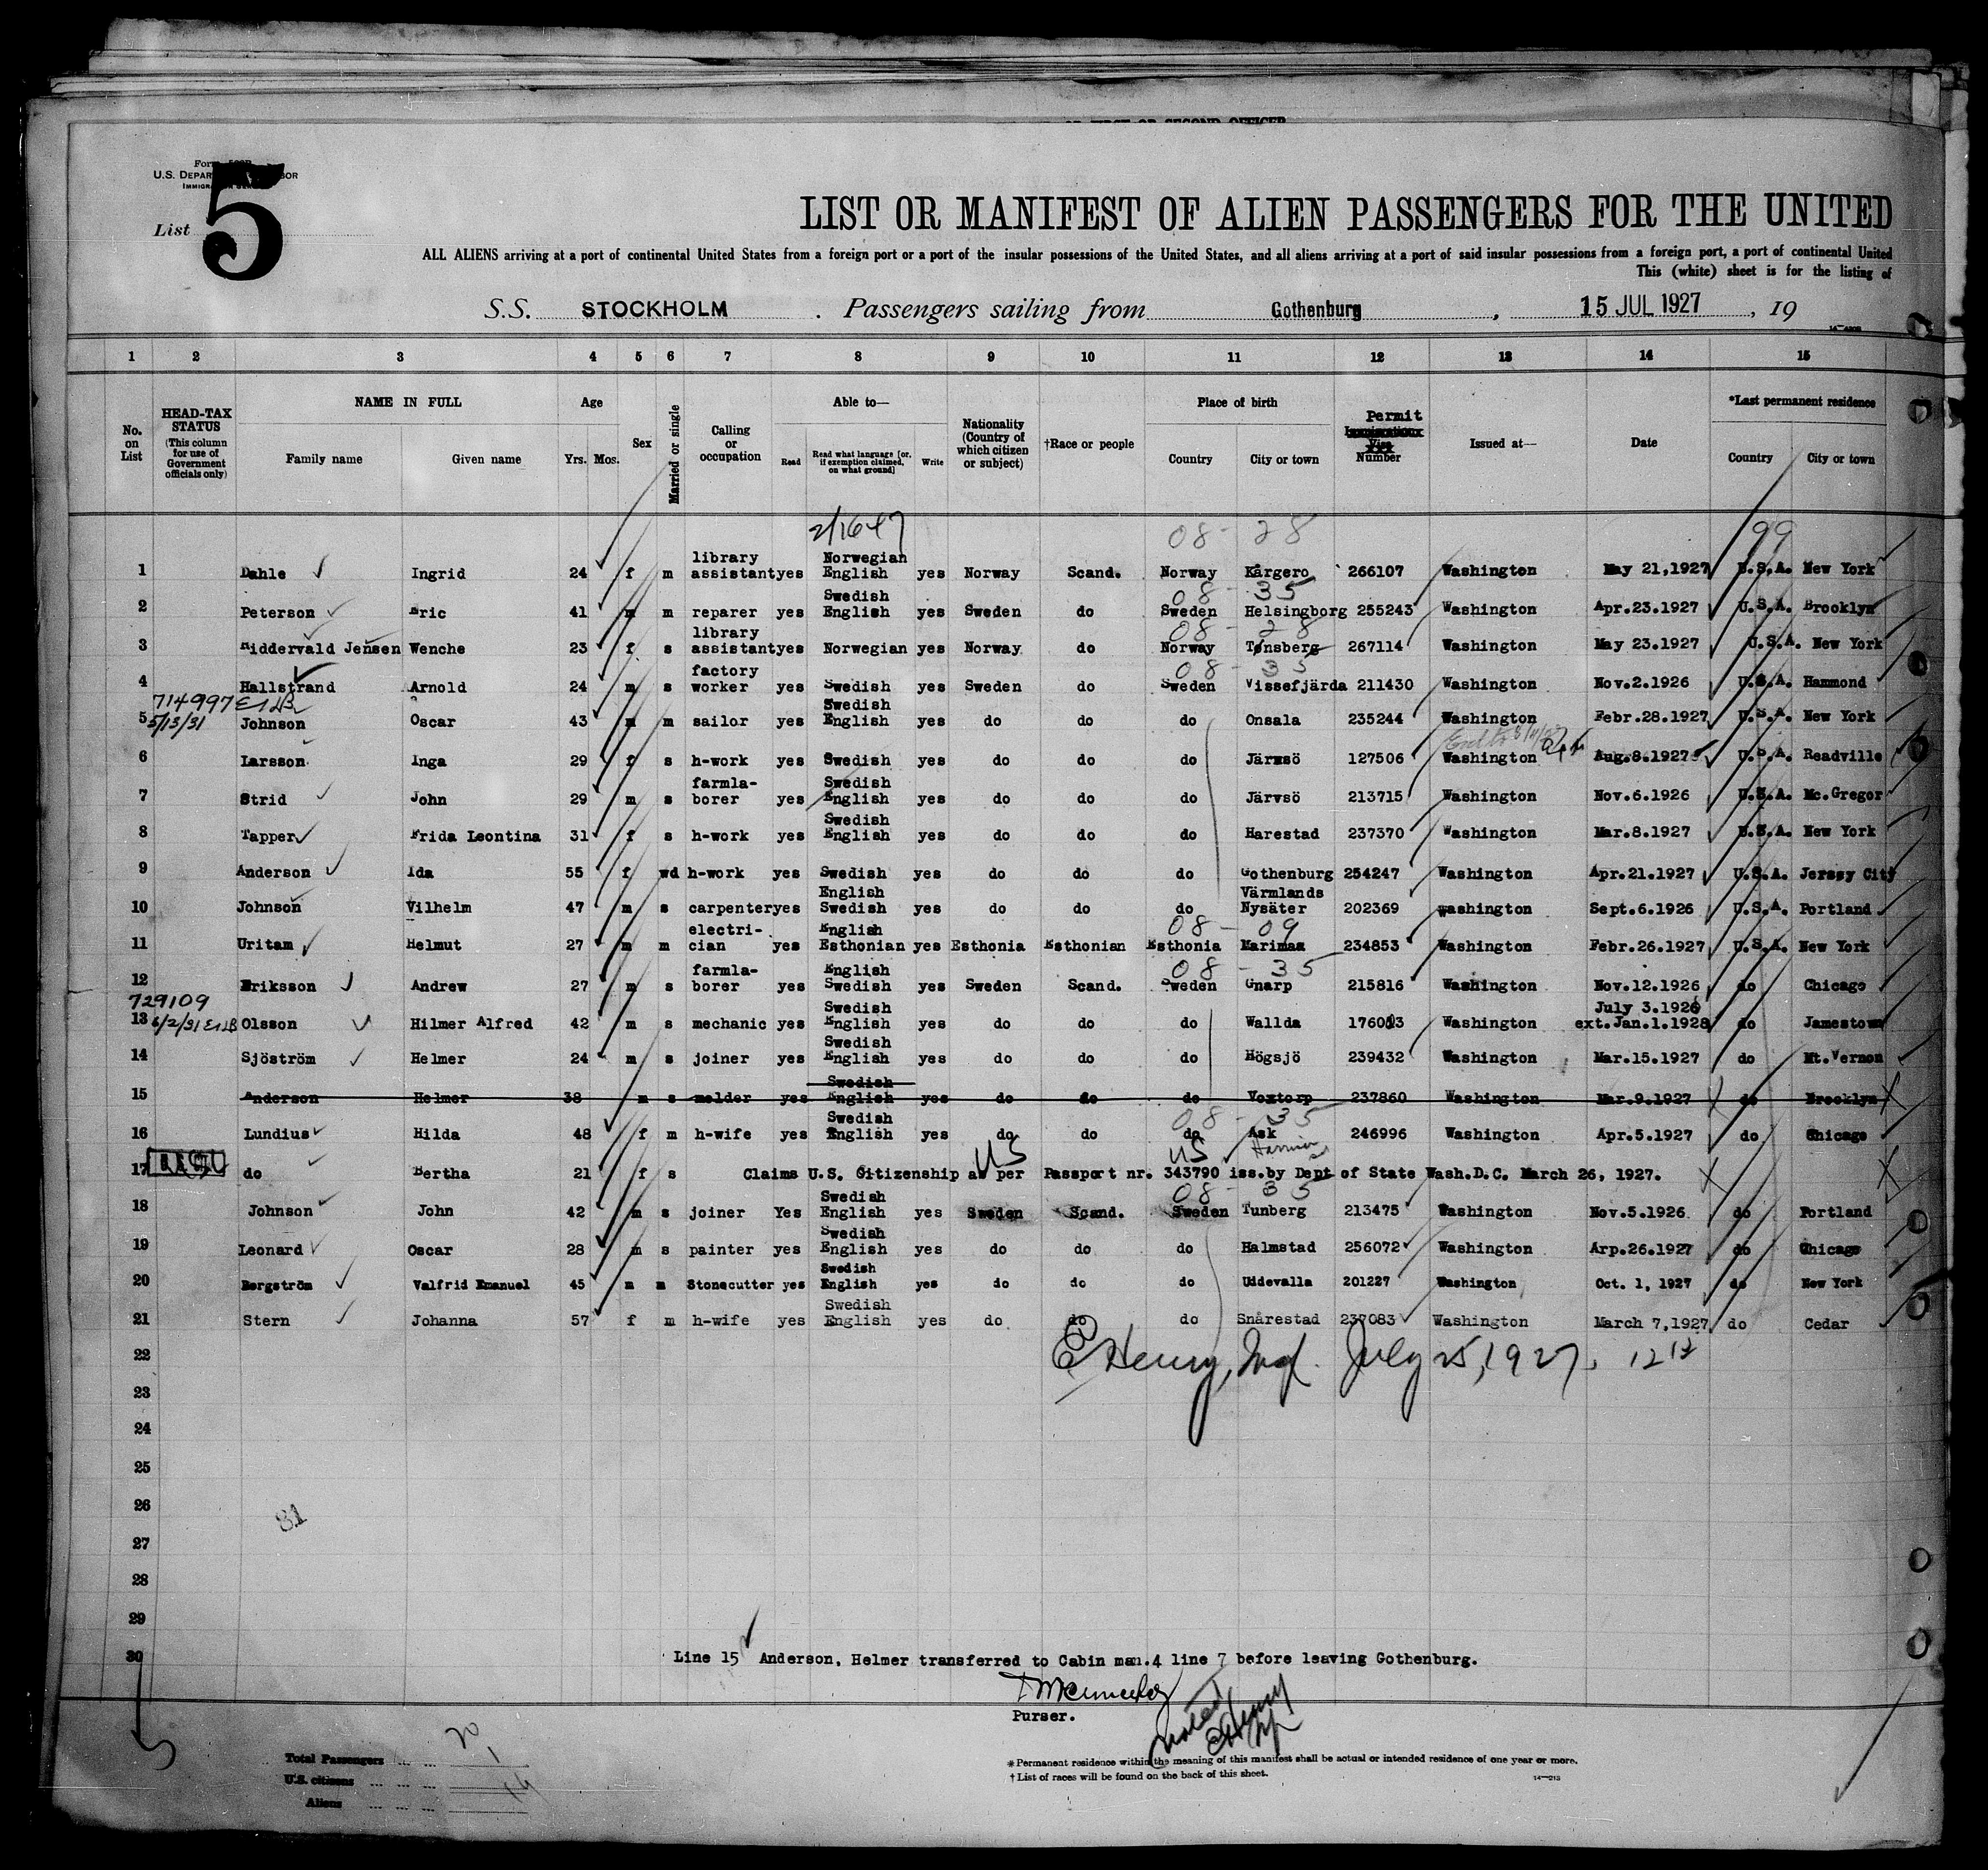 OR FIRST OR SECOND OFFICER
Form 500B
U.S. DEPARTMENT OF LABOR
IMMIGRATION SERVICE
List 5
LIST OR MANIFEST OF ALIEN PASSENGERS FOR THE UNITED
ALL ALIENS arriving at a port of continental United States from a foreign port or a port of the insular possessions of the United States, and all aliens arriving at a port of said insular possessions from a foreign port, a port of continental United
This (white) sheet is for the listing of
S.S. STOCKHOLM . Passengers sailing from Gothenburg , 15 JUL 1927 , 19
1 2 3 4 5 6 7 8 9 10 11 12 13 14 15
No. on List
HEAD-TAX STATUS (This column for use of Government officials only)
NAME IN FULL
Family name Given name
Age
Yrs. Mos.
Sex
Married or single
Calling or occupation
Able to—
Read Read what language [or, if exemption claimed, on what ground] Write
Nationality (Country of which citizen or subject)
†Race or people
Place of birth
Country City or town
Permit
Visa
Number
Issued at—
Date
*Last permanent residence
Country City or town
2/1647 08 - 28 99
library Norwegian
1 Dahle Ingrid 24 f m assistant yes English yes Norway Scand. Norway Kårgero 266107 Washington May 21,1927 U.S.A. New York
Swedish 08 - 35
2 Peterson Eric 41 m m reparer yes English yes Sweden do Sweden Helsingborg 255243 Washington Apr.23.1927 U.S.A. Brooklyn
library 08 - 28
3 Middervald Jensen Wenche 23 f s assistant yes Norwegian yes Norway do Norway Tønsberg 267114 Washington May 23.1927 U.S.A. New York
factory 08 - 35
4 Hallstrand Arnold 24 m s worker yes Swedish yes Sweden do Sweden Vissefjärda 211430 Washington Nov.2.1926 U.S.A. Hammond
714997 Swedish
5 5/13/31 Johnson Oscar 43 m m sailor yes English yes do do do Onsala 235244 Washington Febr.28.1927 U.S.A. New York
6 Larsson Inga 29 f s h-work yes Swedish yes do do do Järvsö 127506 Washington Aug.8.1927 U.S.A. Readville
farmla- Swedish
7 Strid John 29 m s borer yes English yes do do do Järvsö 213715 Washington Nov.6.1926 U.S.A. Mc.Gregor
Swedish
8 Tapper Frida Leontina 31 f s h-work yes English yes do do do Harestad 237370 Washington Mar.8.1927 U.S.A. New York
9 Anderson Ida 55 f wd h-work yes Swedish yes do do do Gothenburg 254247 Washington Apr.21.1927 U.S.A. Jersey City
English Värmlands
10 Johnson Vilhelm 47 m s carpenter yes Swedish yes do do do Nysäter 202369 Washington Sept.6.1926 U.S.A. Portland
electri- English 08 - 09
11 Uritam Helmut 27 m m cian yes Esthonian yes Esthonia Esthonian Esthonia Marimaa 234853 Washington Febr.26.1927 U.S.A. New York
farmla- English 08 - 35
12 Eriksson Andrew 27 m s borer yes Swedish yes Sweden Scand. Sweden Gnarp 215816 Washington Nov.12.1926 do Chicago
729109 Swedish July 3.1926
13 Olsson Hilmer Alfred 42 m s mechanic yes English yes do do do Wallda 176003 Washington ext.Jan.1.1928 do Jamestown
Swedish
14 Sjöström Helmer 24 m s joiner yes English yes do do do Högsjö 239432 Washington Mar.15.1927 do Mt.Vernon
Swedish
15 Anderson Helmer 38 m s molder yes English yes do do do Voxtorp 237860 Washington Mar.9.1927 do Brooklyn
Swedish 08 - 35
16 Lundius Hilda 48 f m h-wife yes English yes do do do Ask 246996 Washington Apr.5.1927 do Chicago
US US
17 do Bertha 21 f s Claims U.S. Citizenship as per Passport nr. 343790 iss.by Dept of State Wash.D.C. March 26, 1927.
Swedish 08 - 35
18 Johnson John 42 m s joiner Yes English yes Sweden Scand. Sweden Tunberg 213475 Washington Nov.5.1926 do Portland
Swedish
19 Leonard Oscar 28 m s painter yes English yes do do do Halmstad 256072 Washington Arp.26.1927 do Chicago
Swedish
20 Bergström Valfrid Emanuel 45 m m Stonecutter yes English yes do do do Uddevalla 201227 Washington Oct. 1, 1927 do New York
Swedish
21 Stern Johanna 57 f m h-wife yes English yes do do do Snårestad 237083 Washington March 7,1927 do Cedar
22 E Henry, Insp. July 25, 1927.
23
24
25
26
81
27
28
29
30 Line 15 Anderson, Helmer transferred to Cabin man.4 line 7 before leaving Gothenburg.
Purser.
noted
E Henry
Total Passengers 20
U.S. citizens 1
Aliens
*Permanent residence within the meaning of this manifest shall be actual or intended residence of one year or more.
†List of races will be found on the back of this sheet. 14—213